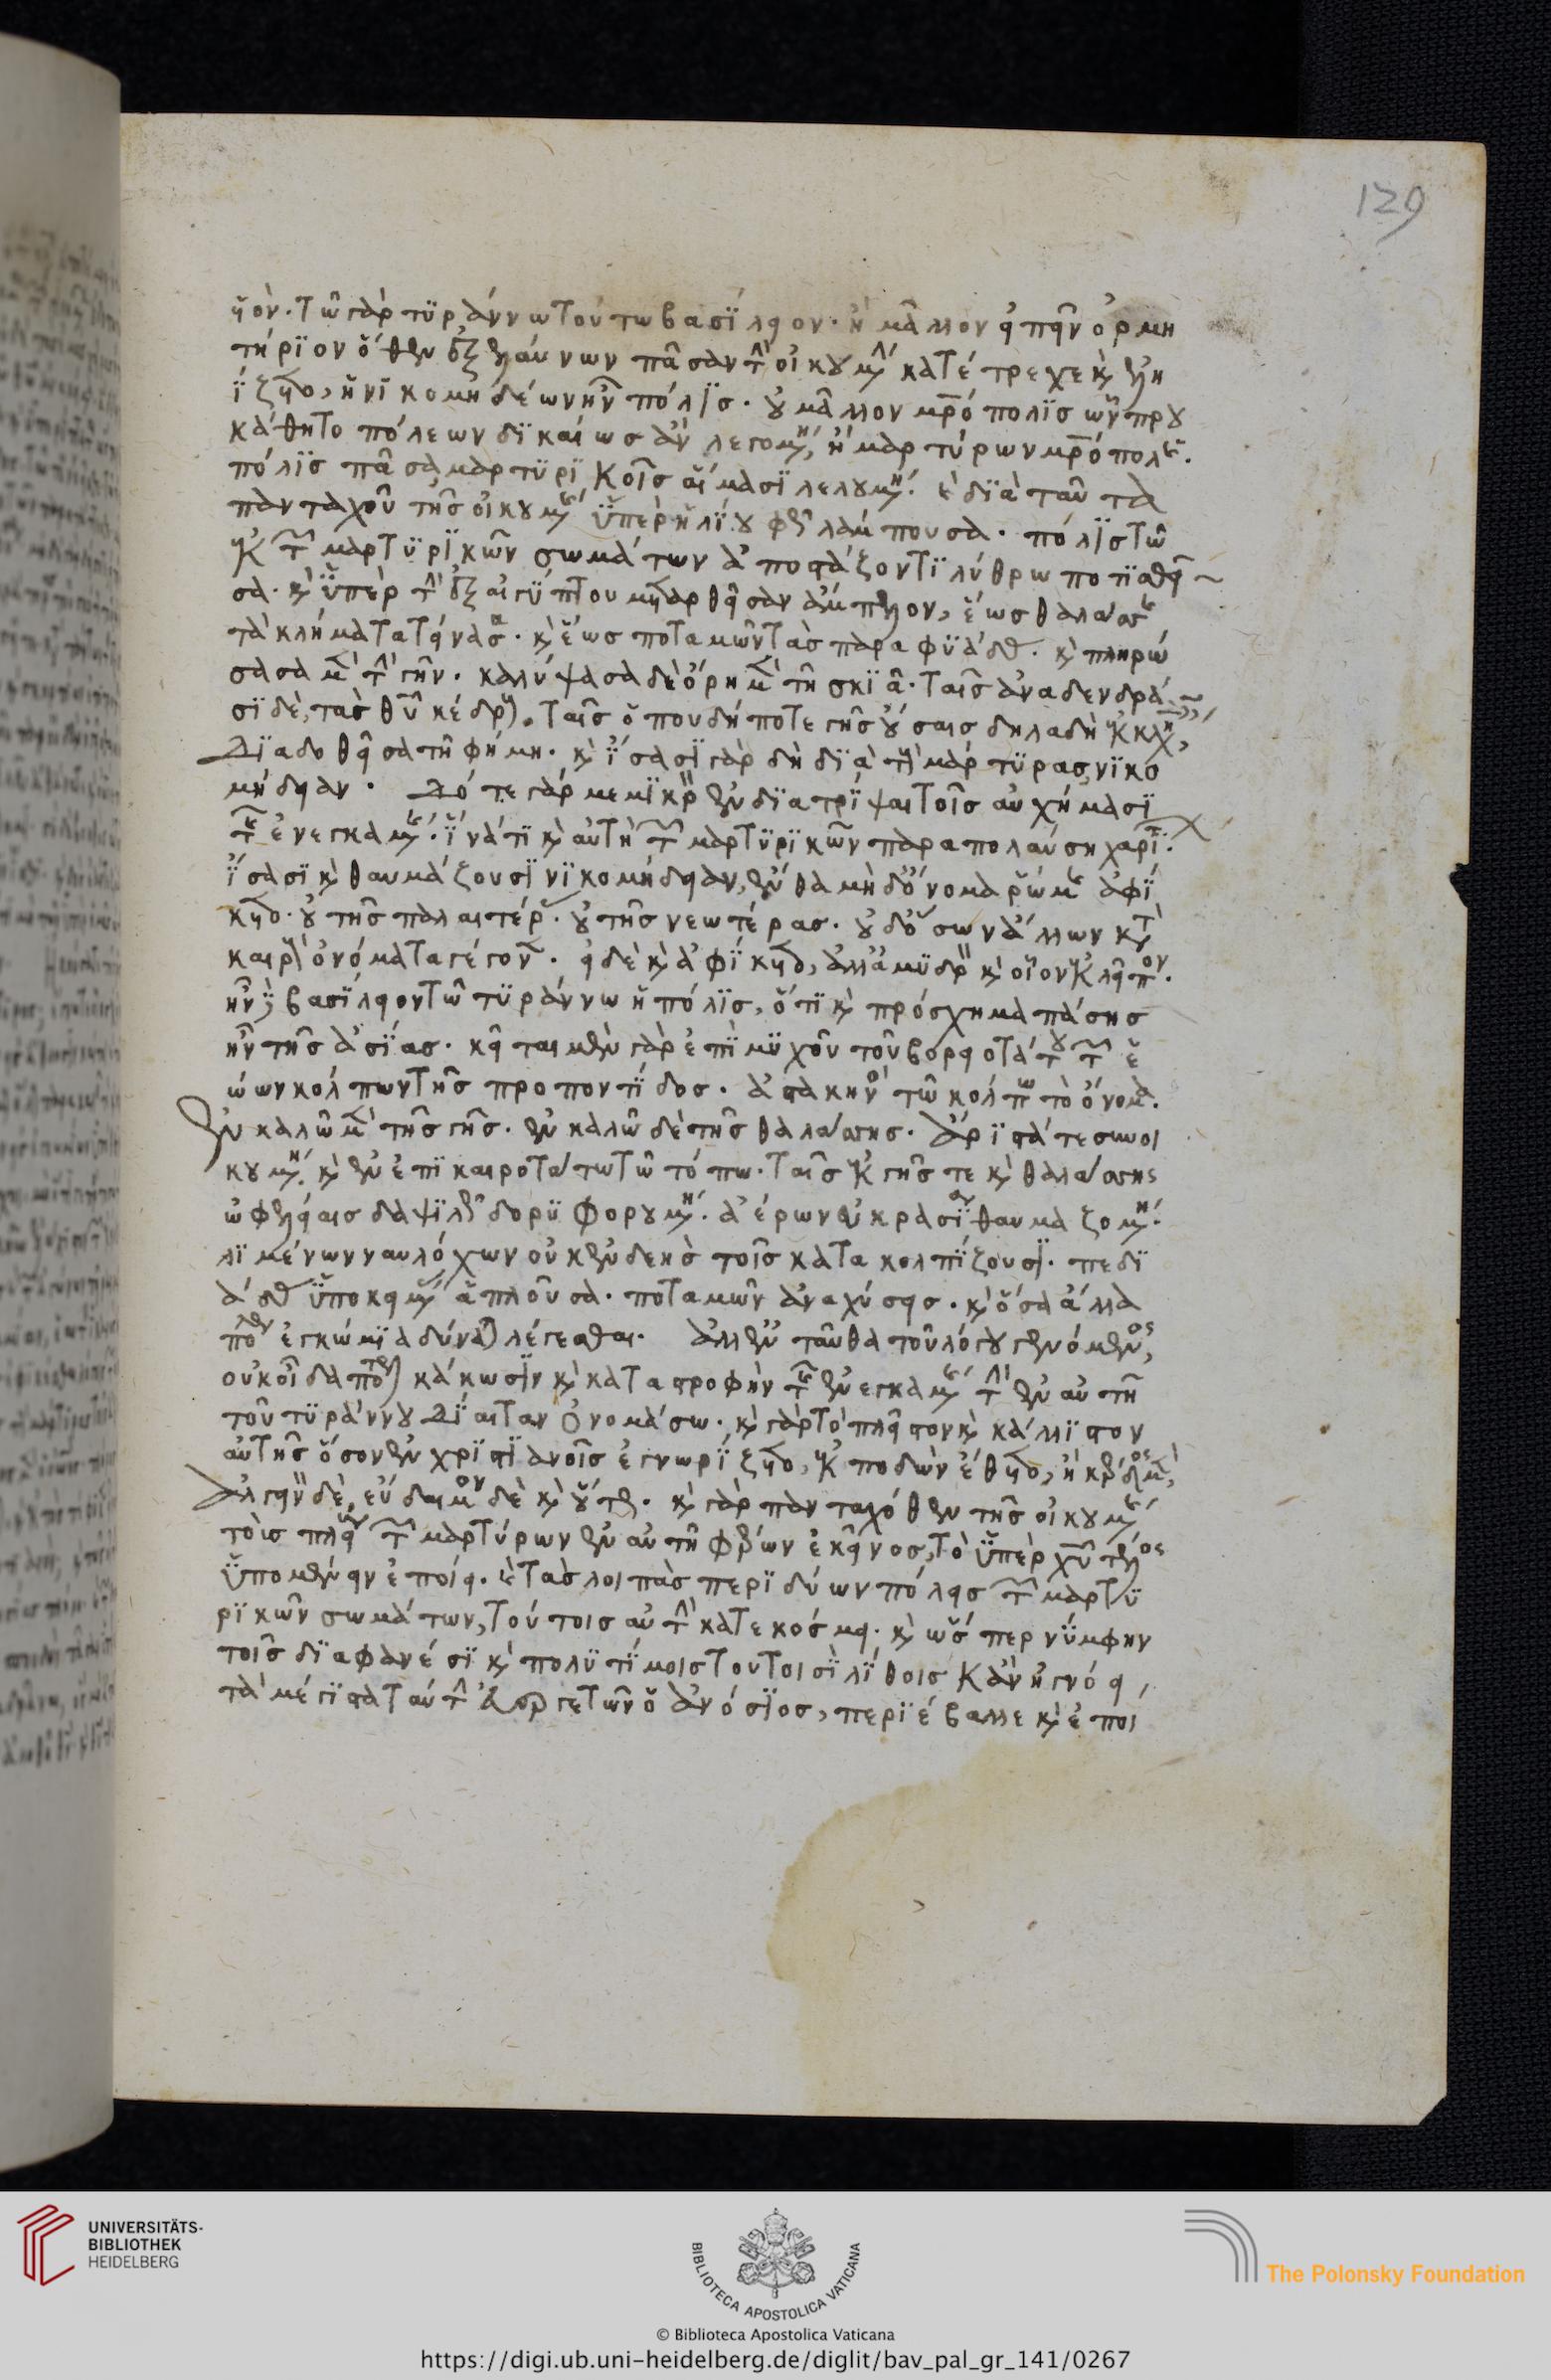 129
ον. τῶ γὰρ τυράννω τούτω βασίλειον. ἢ μᾶλλον εἰπεῖν ὁρμη
τήριον ὅθεν ἐξελαύνων πᾶσαν τὴν οἰκουμένην κατέτρεχε καὶ ἐλη
ΐζετο, ἡ νικομηδέων ἦν πόλις. οὐ μᾶλλον μητρόπολις ὧν πρου
κάθητο πόλεων δικαίως ἂν λεγομένη, ἢ μαρτύρων μητρόπολις.
πόλις πᾶσα μαρτυρικοῖς αἵμασι λελουμένη. καὶ διὰ ταῦτα
πανταχοῦ τῆς οἰκουμένης ὑπὲρ ἡλίου φῶς λάμπουσα. πόλις τῶ
ἐκ τῶν μαρτυρικῶν σωμάτων ἀποστάζοντι λύθρω ποτισθεῖ
σα. καὶ ὑπὲρ τὴν ἐξ αἰγύπτου μεταρθεῖσαν ἄμπελον, ἕως θαλάσσης
τὰ κλήματα τείνασα. καὶ ἕως ποταμῶν τὰς παραφυάδας. καὶ πληρώ
σασα μὲν τὴν γῆν. καλύψασα δὲ ὄρη μὲν τῆ σκιᾶ. ταῖς ἀναδενδρά
σι δὲ, τὰς θεοῦ κέδρους. ταῖς ὅπου δήποτε γῆς οὔσαις δηλαδὴ ἐκκλησίαις,
διαδοθεῖσα τῆ φήμη. καὶ ἴσασι γὰρ δὴ διὰ τοὺς μάρτυρας νικο
μήδειαν. Δότε γάρ με μικρὸν ἐνδιατρίψαι τοῖς αὐχήμασι
τῆς ἐνεγκαμένης. ἵνά τι καὶ αὐτὴ τῶν μαρτυρικῶν παραπολαύση χαρίτων.
ἴσασι καὶ θαυμάζουσι νικομήδειαν, ἔνθα μὴ δ' ὄνομα ῥώμης ἀφί
κετο. οὐ τῆς παλαιτέρας. οὐ τῆς νεωτέρας. οὐδ' ὅσων ἄλλων κατὰ
καιροὺς ὀνόματα γέγονεν. εἰ δὲ καὶ ἀφίκετο, ἀλλ' ἀμυδρὸν καὶ οἷον ἐκλεῖπον.
ἦν βασίλειον τῶ τυράννω ἡ πόλις, ὅτι καὶ πρόσχημα πάσης
ἦν τῆς ἀσίας. κεῖται μὲν γὰρ ἐπὶ μυχοῦ τοῦ βορειοτάτου τῶν ἑ
ώων κόλπων τῆς προποντίδος. ἀστακηνὸς τῶ κόλπω τὸ ὄνομα.
ἐν καλῶ μὲν τῆς γῆς. ἐν καλῶ δὲ τῆς θαλάσσης. ἄριστά τε συνοι
κουμένη. καὶ ἐν ἐπικαιροτάτω τῶ τόπω. ταῖς ἐκ γῆς τε καὶ θαλάσσης
ὠφελείαις δαψιλῶς δορυφορουμένη. ἀέρων εὐκρασίαν θαυμαζομένη.
λιμένων ναυλόχων οὐκ ἐνδεὴς τοῖς κατακολπίζουσι. πεδι
άδας ὑποκειμένας ἁπλοῦσα. ποταμῶν ἀναχύσεις. καὶ ὅσα ἄλλα
πόλεων ἐγκώμια δύναται λέγεσθαι. Ἀλλ' ἐνταῦθα τοῦ λόγου γενόμενος,
οὐκ οἶδα πότερον κάκωσιν καὶ καταστροφὴν τῆς ἐνεγκαμένης τὴν ἐν αὐτῆ
τοῦ τυράννου δίαιταν ὀνομάσω. καὶ γὰρ τὸ πλεῖστον καὶ κάλλιστον
αὐτῆς ὅσον ἐν χριστιανοῖς ἐγνωρίζετο, ἐκποδὼν ἔθετο, ἢ κέρδος μὲν,
ἀλγεινὸν δὲ, εὔδαιμον δὲ καὶ οὕτως. καὶ γὰρ πανταχόθεν τῆς οἰκουμένης
τοὺς πλείους τῶν μαρτύρων ἐν αὐτῆ φέρων ἐκεῖνος, τὸ ὑπὲρ χριστοῦ τέλος
ὑπομένειν ἐποίει. καὶ τὰς λοιπὰς περιδύων πόλεις τῶν μαρτυ
ρικῶν σωμάτων, τούτοις αὐτὴν κατεκόσμει. καὶ ὥσπερ νύμφην
τοῖς διαφανέσι καὶ πολυτίμοις τουτοισὶ λίθοις κἂν ἠγνόει,
τὰ μέγιστα ταύτην εὐεργετῶν ὁ ἀνόσιος, περιέβαλλε καὶ ἐποι
UNIVERSITÄTS-
BIBLIOTHEK
HEIDELBERG
BIBLIOTECA APOSTOLICA VATICANA
The Polonsky Foundation
© Biblioteca Apostolica Vaticana
https://digi.ub.uni-heidelberg.de/diglit/bav_pal_gr_141/0267